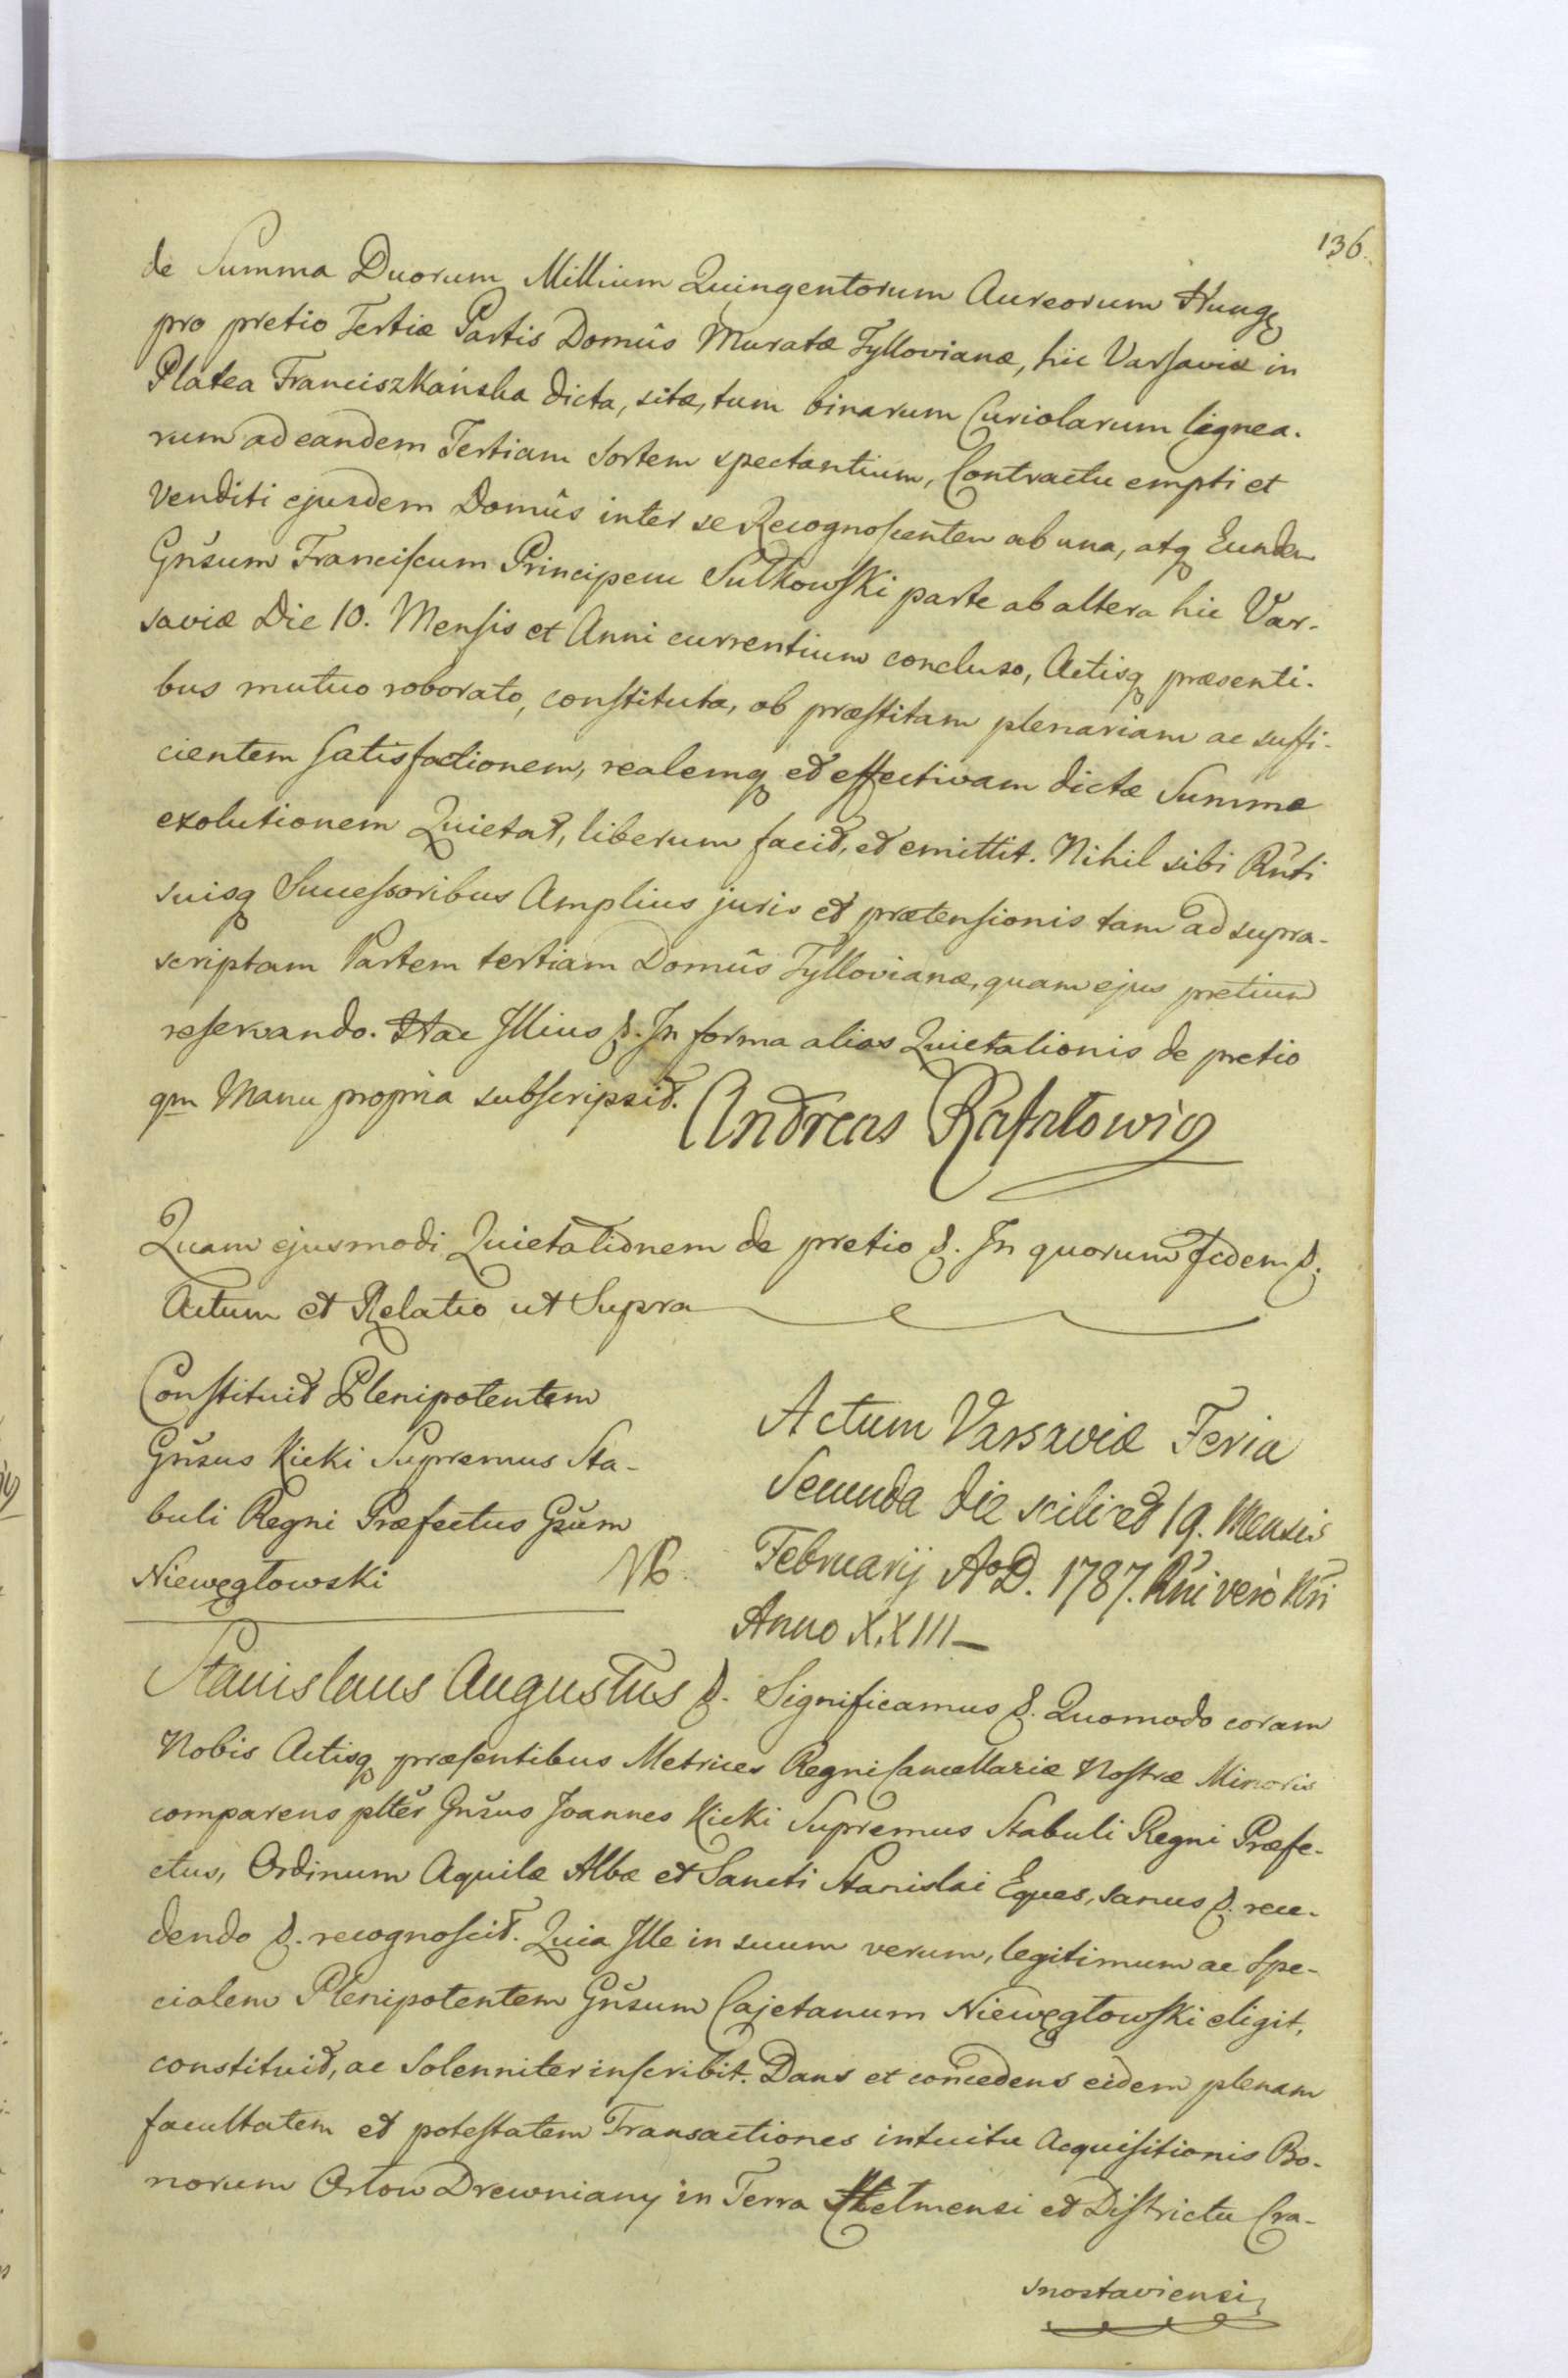 136.
de Summa Duorum Millium Quingentorum Aureorum Hungq
pro pretio Tertiæ Partis Domûs Muratæ Tyllovianæ, hic Varsaviæ in
Platea Franciszkańska dicta, sitæ, tum binarum Curiolarum lignea-
rum ad eandem Tertiam Sortem spectantium, Contractu empti et
Venditi ejusdem Domûs inter se Recognoscentem ab una, atq Eundem
Gñsum Franciscum Principem Sułkowski parte ab altera hic Var-
saviæ Die 10. Mensis et Anni currentium concluso, Actisq præsenti-
bus mutuo roborato, constituta, ob præstitam plenariam ac suffi-
cientem satisfactionem, realemq et effectivam dictæ Summæ
exolutionem Quietat, liberum facit, et emittit. Nihil sibi Rñti
suisq Successoribus Amplius juris et prætensionis tam ad supra-
scriptam Partem tertiam Domûs Tyllovianæ, quam ejus pretium
reservando. Hac Illius &. In forma alias Quietationis de pretio
qm Manu propria subscripsit. Andreas Rafałowicz
Quam ejusmodi Quietationem de pretio &. In quorum fidem &.
Actum et Relatio ut Supra
Constituit Plenipotentem
Gñsus Kicki Supremus Sta-
buli Regni Præfectus Gsum
Niewęgłowski
Actum Varsaviæ Feria
Secunda die scilicet 19. Mensis
Februarij AoD. 1787. Rñi verò Nri
Anno XXIII
Stanislaus Augustus &. Significamus &. Quomodo coram
Nobis Actisq præsentibus Metrices Regni Cancellariæ Nostræ Minoris
comparens plter Gñsus Joannes Kicki Supremus Stabuli Regni Præfe-
ctus, Ordinum Aquilæ Albæ et Sancti Stanislai Eques, sanus &. rece-
dendo &. recognoscit. Quia Ille in suum verum, legitimum ac Spe-
cialem Plenipotentem Gñsum Cajetanum Niewęgłowski eligit,
constituit, ac Solenniter inscribit. Dans et concedens eidem plenam
facultatem et potestatem Transactiones intuitu Acquisitionis Bo-
norum Orłow Drewniany in Terra Chelmensi et Districtu Cra-
snostaviensi